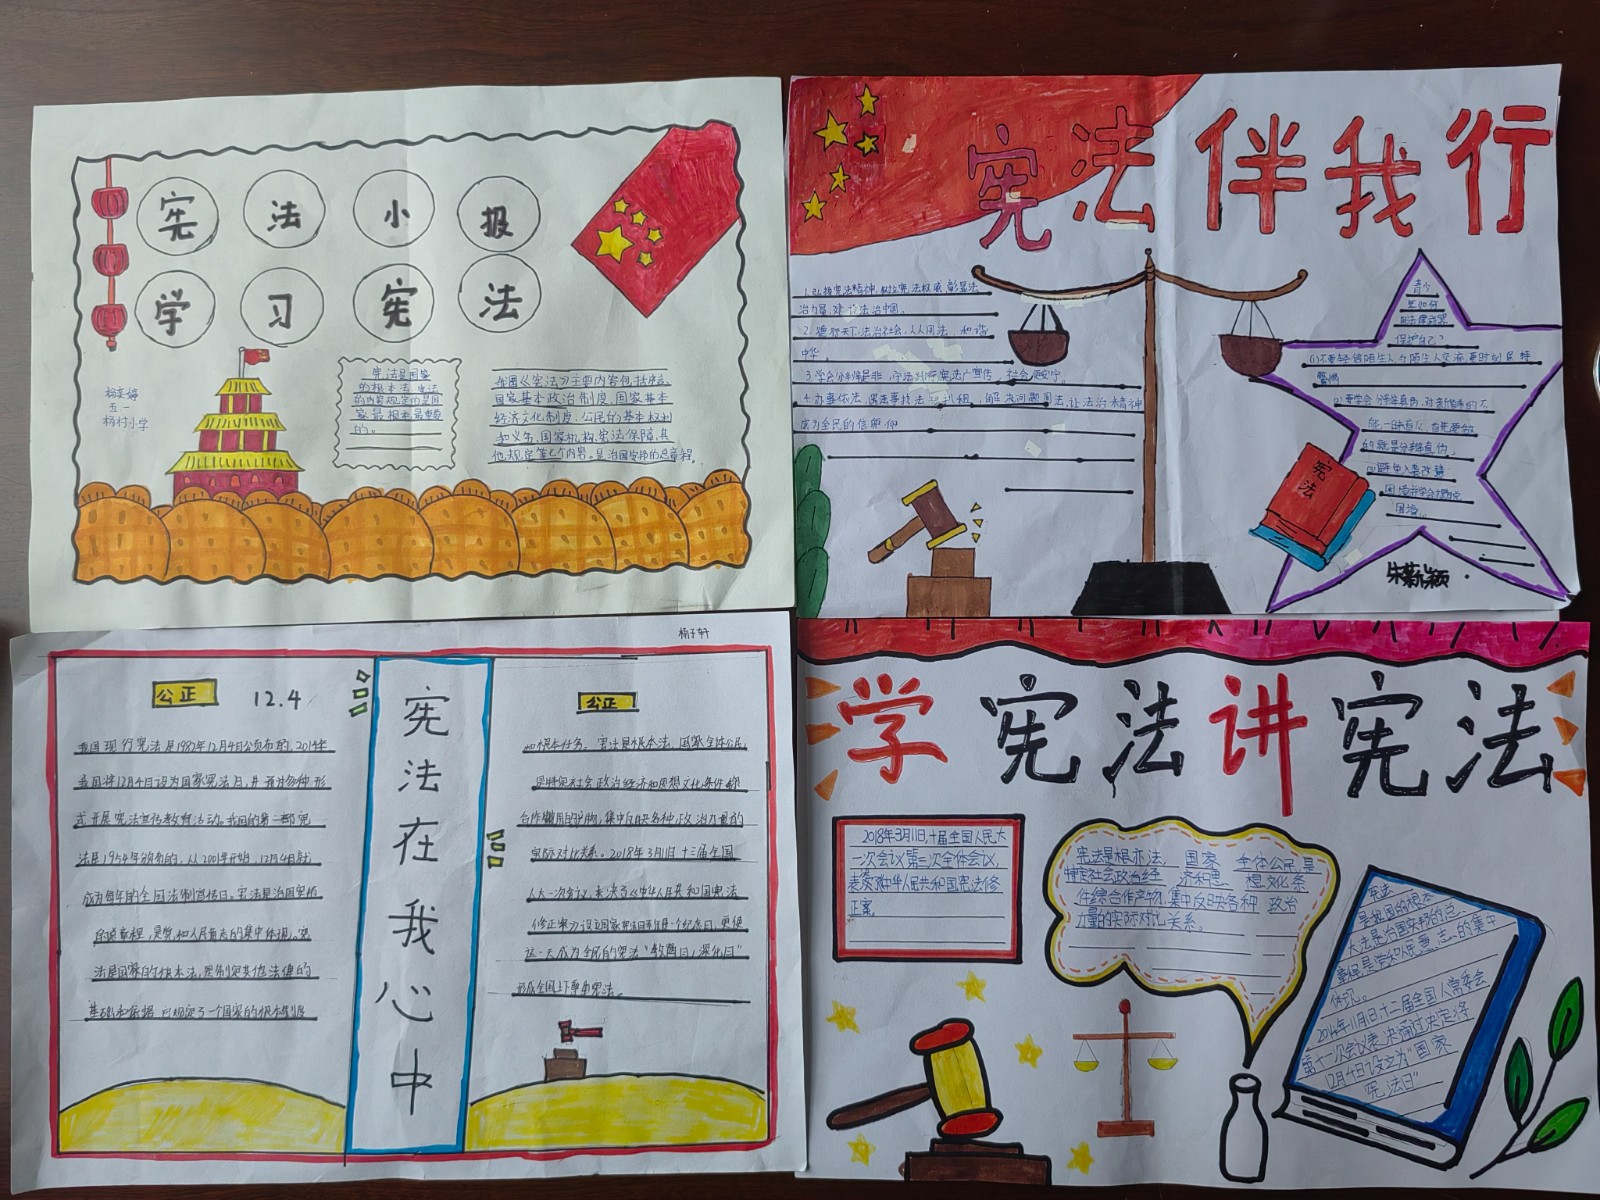 宪法小报
学习宪法
杨奕婷
五一
杨村小学
宪法是国家
的根本法,宪法
的内容规定的是国
家最根本最重要
的。
我国《宪法》主要内容包括序言、
国家基本政治制度、国家基本
经济文化制度、公民的基本权利
和义务、国家机构、宪法保障、其
他规定等七个内容。是治国安邦的总章程。
宪法伴我行
1.弘扬宪法精神,树立宪法权威,彰显法
治力量,建设法治中国。
中华。
成为全民的信仰
青少
年如何
用法律武器
保护自己?
(1)不要轻信陌生人,与陌生人交流要时刻保持
警惕
宪法
朱蕲颖
杨子轩
公正
12.4
我国现行宪法是1982年12月4日公页布的,2014年
我国将12月4日设为国家宪法日,并
式开展宪法宣传教育活动。我国的第一部宪
法是1954年颁布的,从2001年开始,12月4日就
成为每年的全国法制宣传日。宪法是治国安邦
的总章程,是党和人民意志的集中体现。宪
法是国家的根本法,是制定其他法律的
基础和依据,它规定了一个国家的根本制度
宪法在我心中
公正
和根本任务。宪法是根本法,国家全体公民,
是特定社会政治经济和思想文化条件综
合作用的产物,集中反映各种政治力量的
实际对比关系。2018年3月11日十三届全国
人大一次会议,表决了《中华人民共和国宪法
这一天成为全民的宪法“教育日,深化日”
形成全国上下尊崇宪法。
学宪法讲宪法
2018年3月11日,十届全国人民大
一次会议第三次全体会议,
表决对中华人民共和国宪法修
正案。
宪法是根本法, 国家 全体公民,是
特定社会政治经 济和思 想文化条
件综合作产物,集中反映各种 政治
力量的实际对比关系。
宪法
是我国的根本
大法是治国安邦的总
章程是党和人民意志的集中
体现。
2014年11月1日十二届全国人常委会
第十一次会议表决通过决定将
12月4日设立为“国家
宪法日”